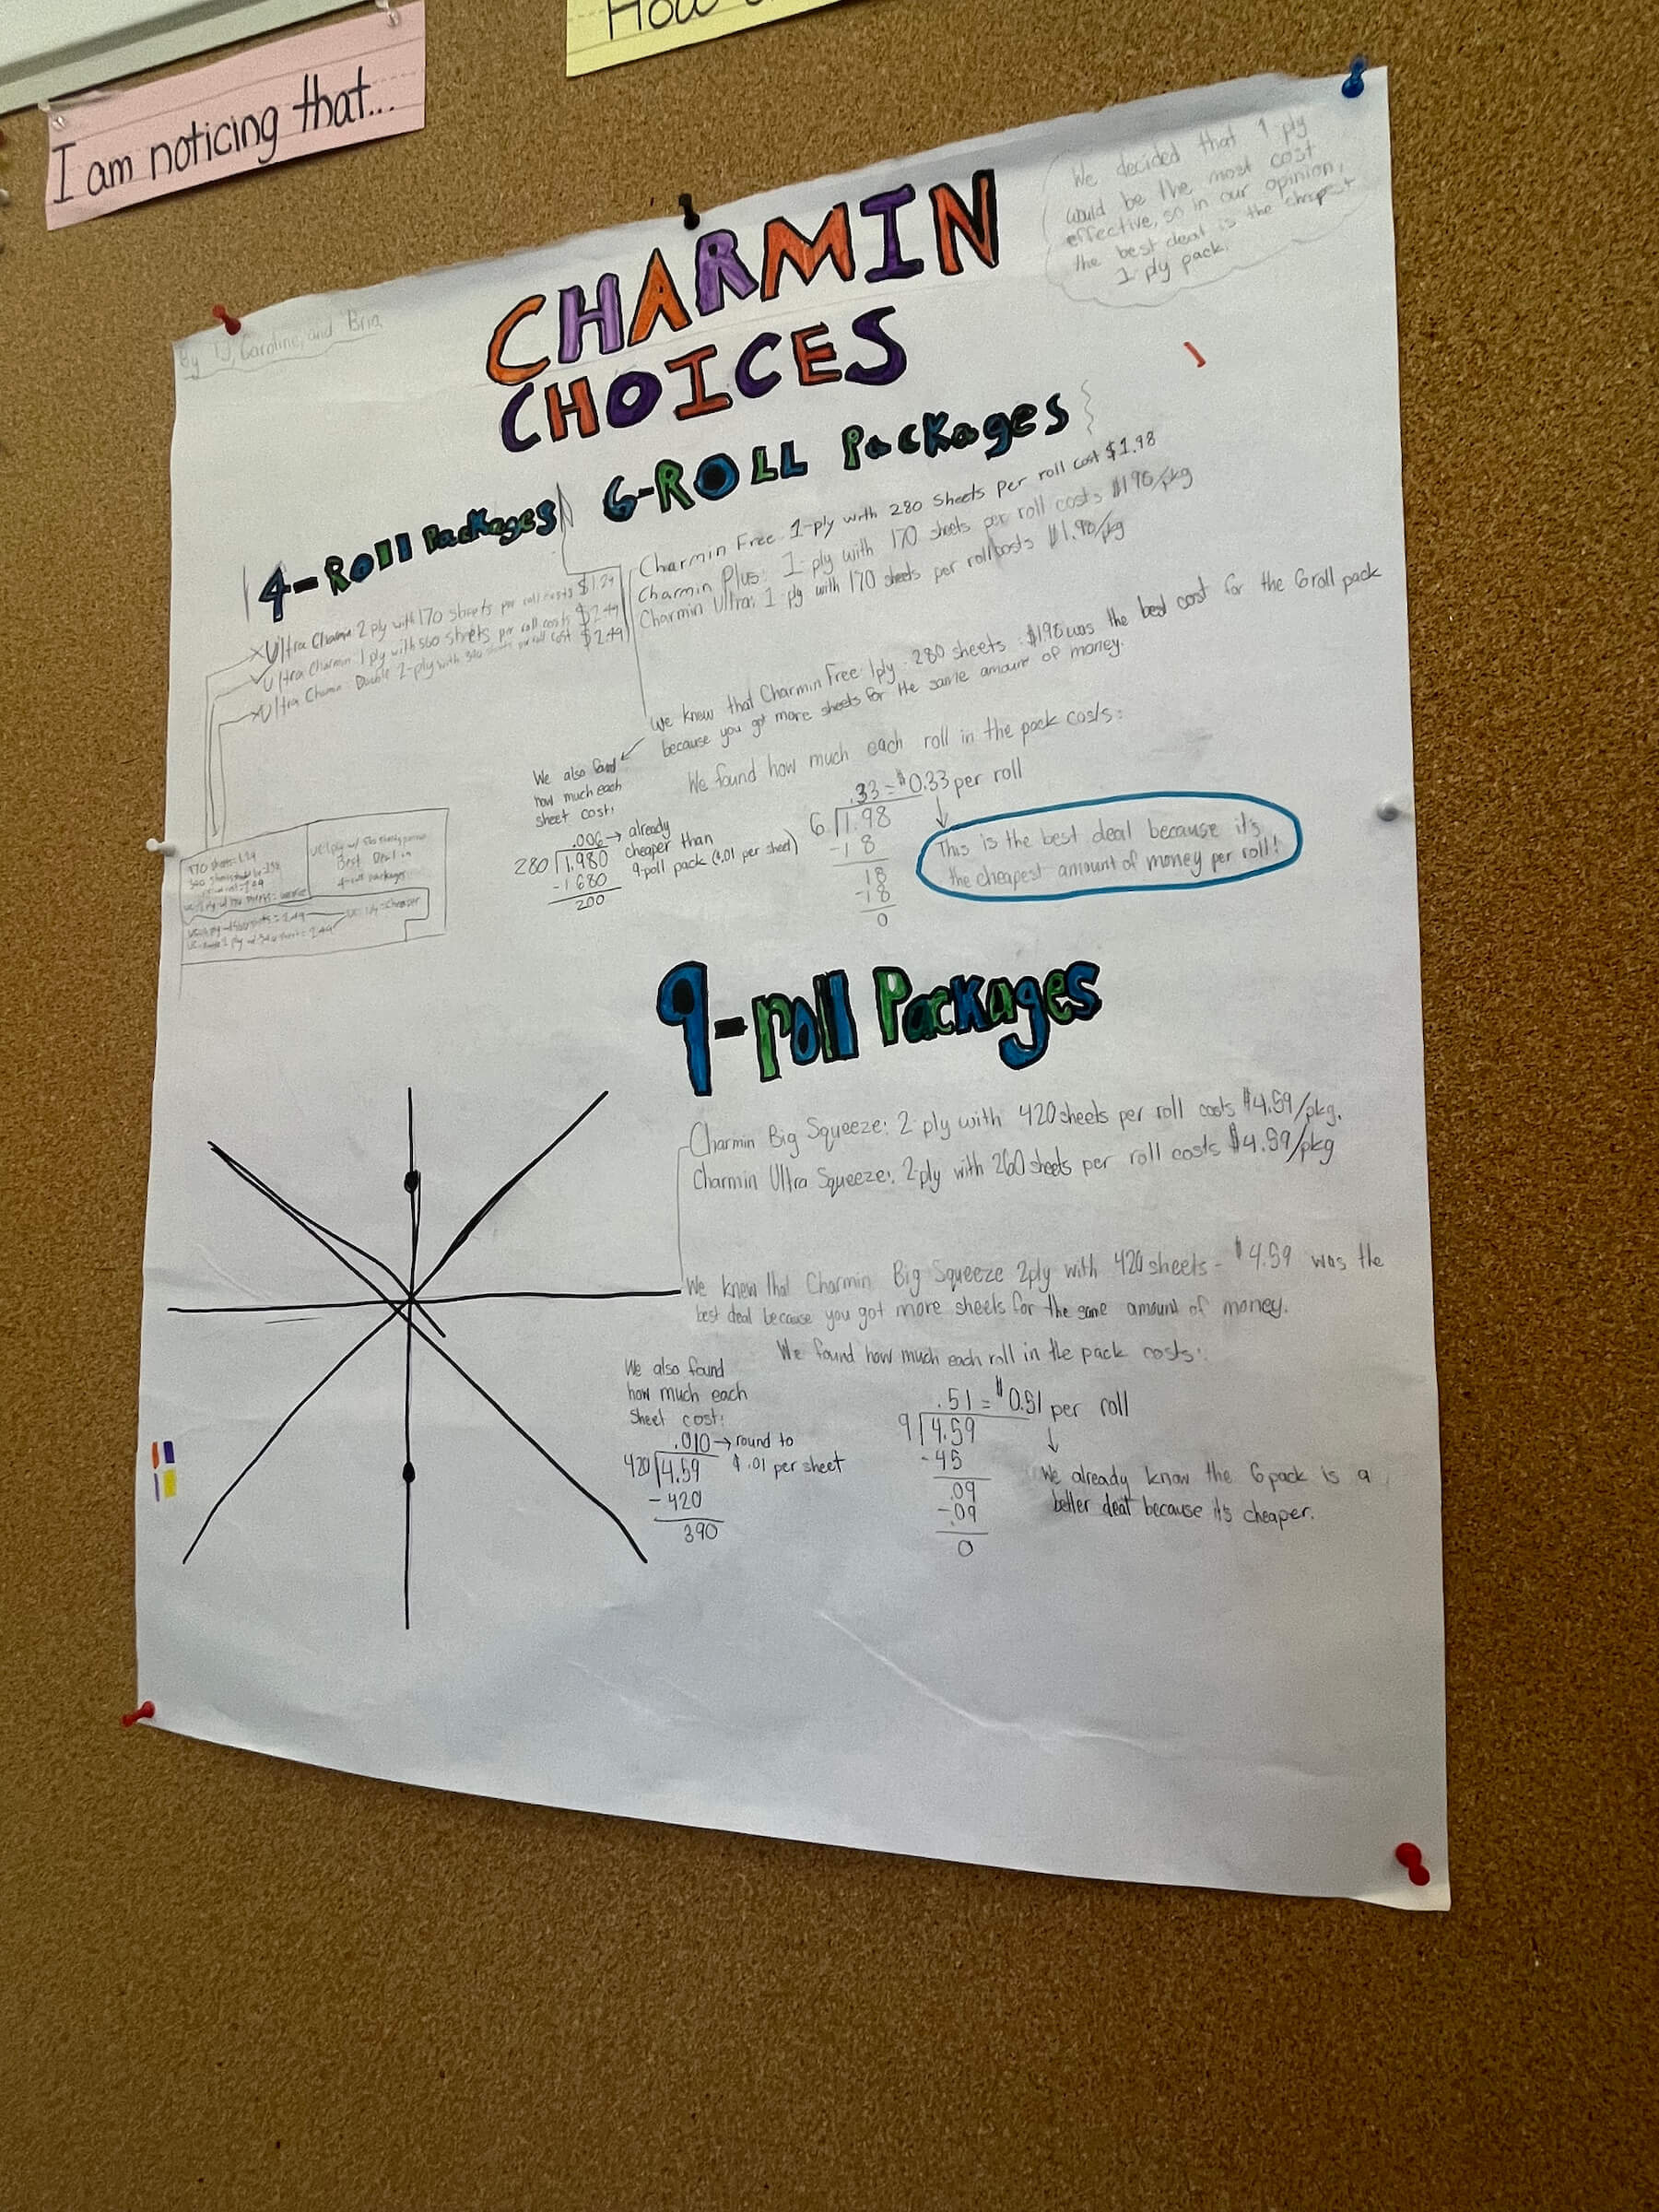 I am noticing that...
We decided that 1 ply
would be the most cost
effective, so in our opinion,
the best deal is the cheapest
1-ply pack.
By TJ, Caroline, and Bria
CHARMIN
CHOICES
4-Roll Packages
Ultra Charmin: 2 ply with 170 sheets per roll costs $1.29
Ultra Charmin: 1 ply with 560 sheets per roll costs $2.49
Ultra Charmin Double 2-ply with sheets per roll cost $2.49
170 sheets =
Best Deal in
4-roll packages
6-ROLL Packages
Charmin Free 1-ply with 280 Sheets per roll cost $1.98
Charmin Plus: 1-ply with 170 sheets per roll costs $1.98/pkg
Charmin Ultra: 1 ply with 170 sheets per roll costs $1.98/pkg
We knew that Charmin Free 1ply 280 sheets $1.98 was the best cost for the 6 roll pack
because you got more sheets for the same amount of money.
We also found
how much each
sheet cost:
.006 → already
280 1.980 cheaper than
-1680 9-roll pack (.01 per sheet)
200
We found how much each roll in the pack costs:
.33 = $0.33 per roll
6 1.98
-18
18
-18
0
This is the best deal because it's
the cheapest amount of money per roll!
9-roll Packages
Charmin Big Squeeze: 2-ply with 420 sheets per roll costs $4.59/pkg.
Charmin Ultra Squeeze: 2-ply with 260 sheets per roll costs $4.59/pkg
We knew that Charmin Big Squeeze 2ply with 420 sheets - $4.59 was the
best deal because you got more sheets for the same amount of money.
We found how much each roll in the pack costs:
We also found
how much each
sheet cost:
.010 → round to
420 4.59 $.01 per sheet
-420
390
.51 = $0.51 per roll
9 4.59
-45
.09
-.09
0
We already know the 6 pack is a
better deal because it's cheaper.